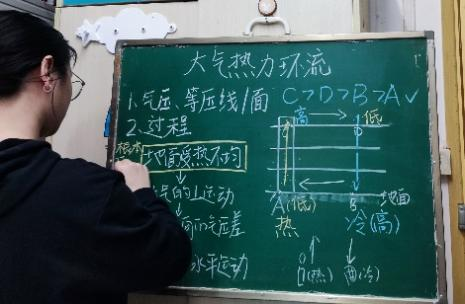 大气热力环流
1、气压、等压线/面
2、过程
根本 地面受热不均
气的⊥运动
面气压差
水平运动
C>D>B>A✓
高 低
A(低) B 地面
热 冷(高)
(热) (冷)